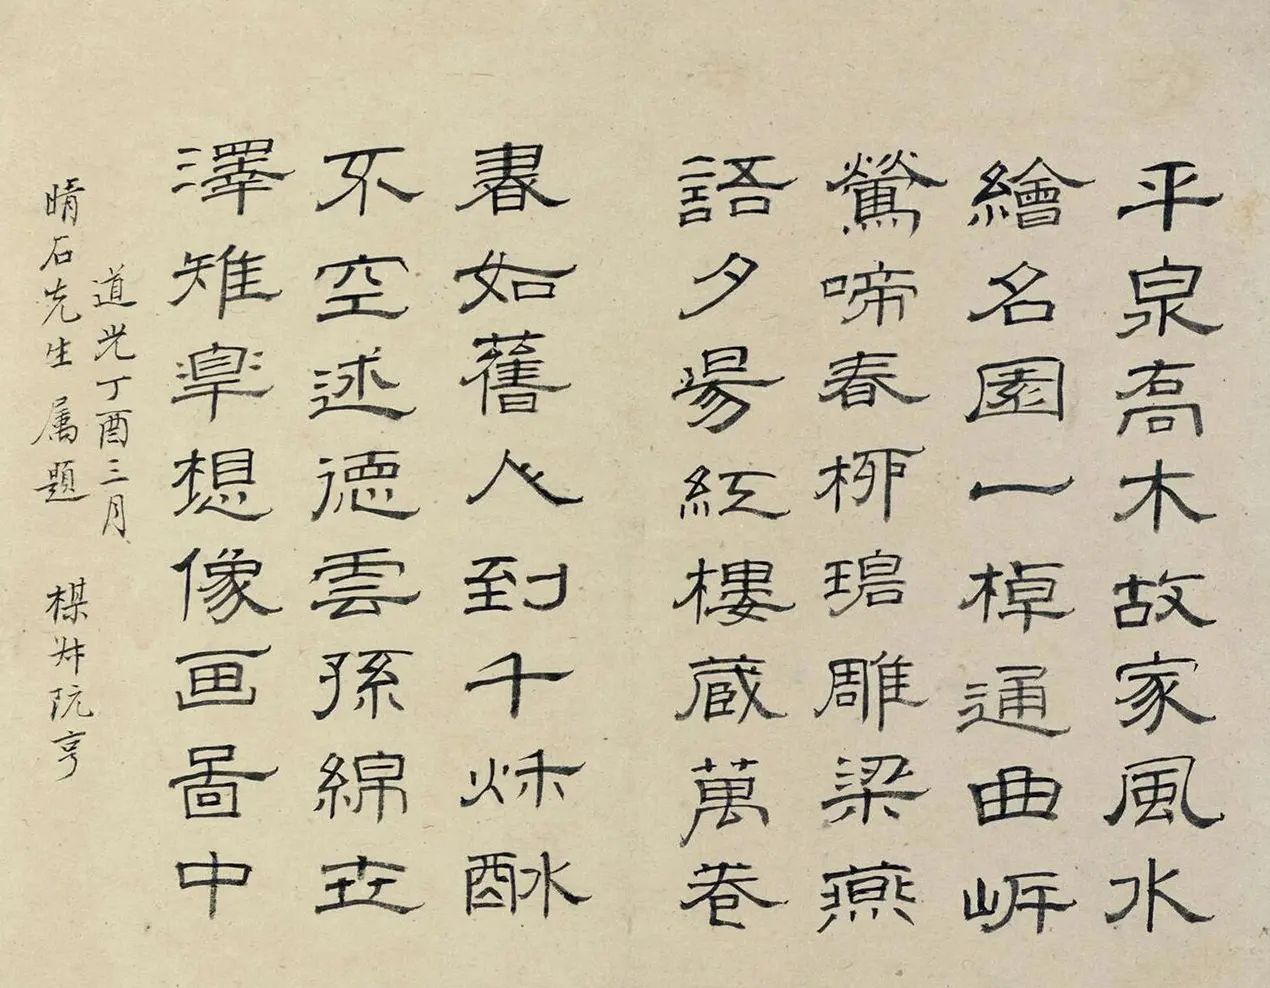 平泉高木故家風水
繪名園一棹通曲岸
鶯啼春柳碧雕梁燕
語夕陽紅樓藏萬卷
書如舊人到千秌酬
不空述德雲孫綿世
澤雉皋想像画啚中
道光丁酉三月
晴石先生属題 楳叔阮亨